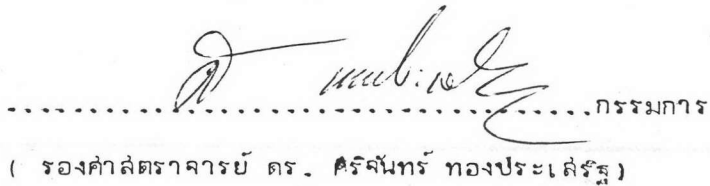 ........................................กรรมการ
( รองศาสตราจารย์ ดร. ศิริจันทร์ ทองประเสริฐ)